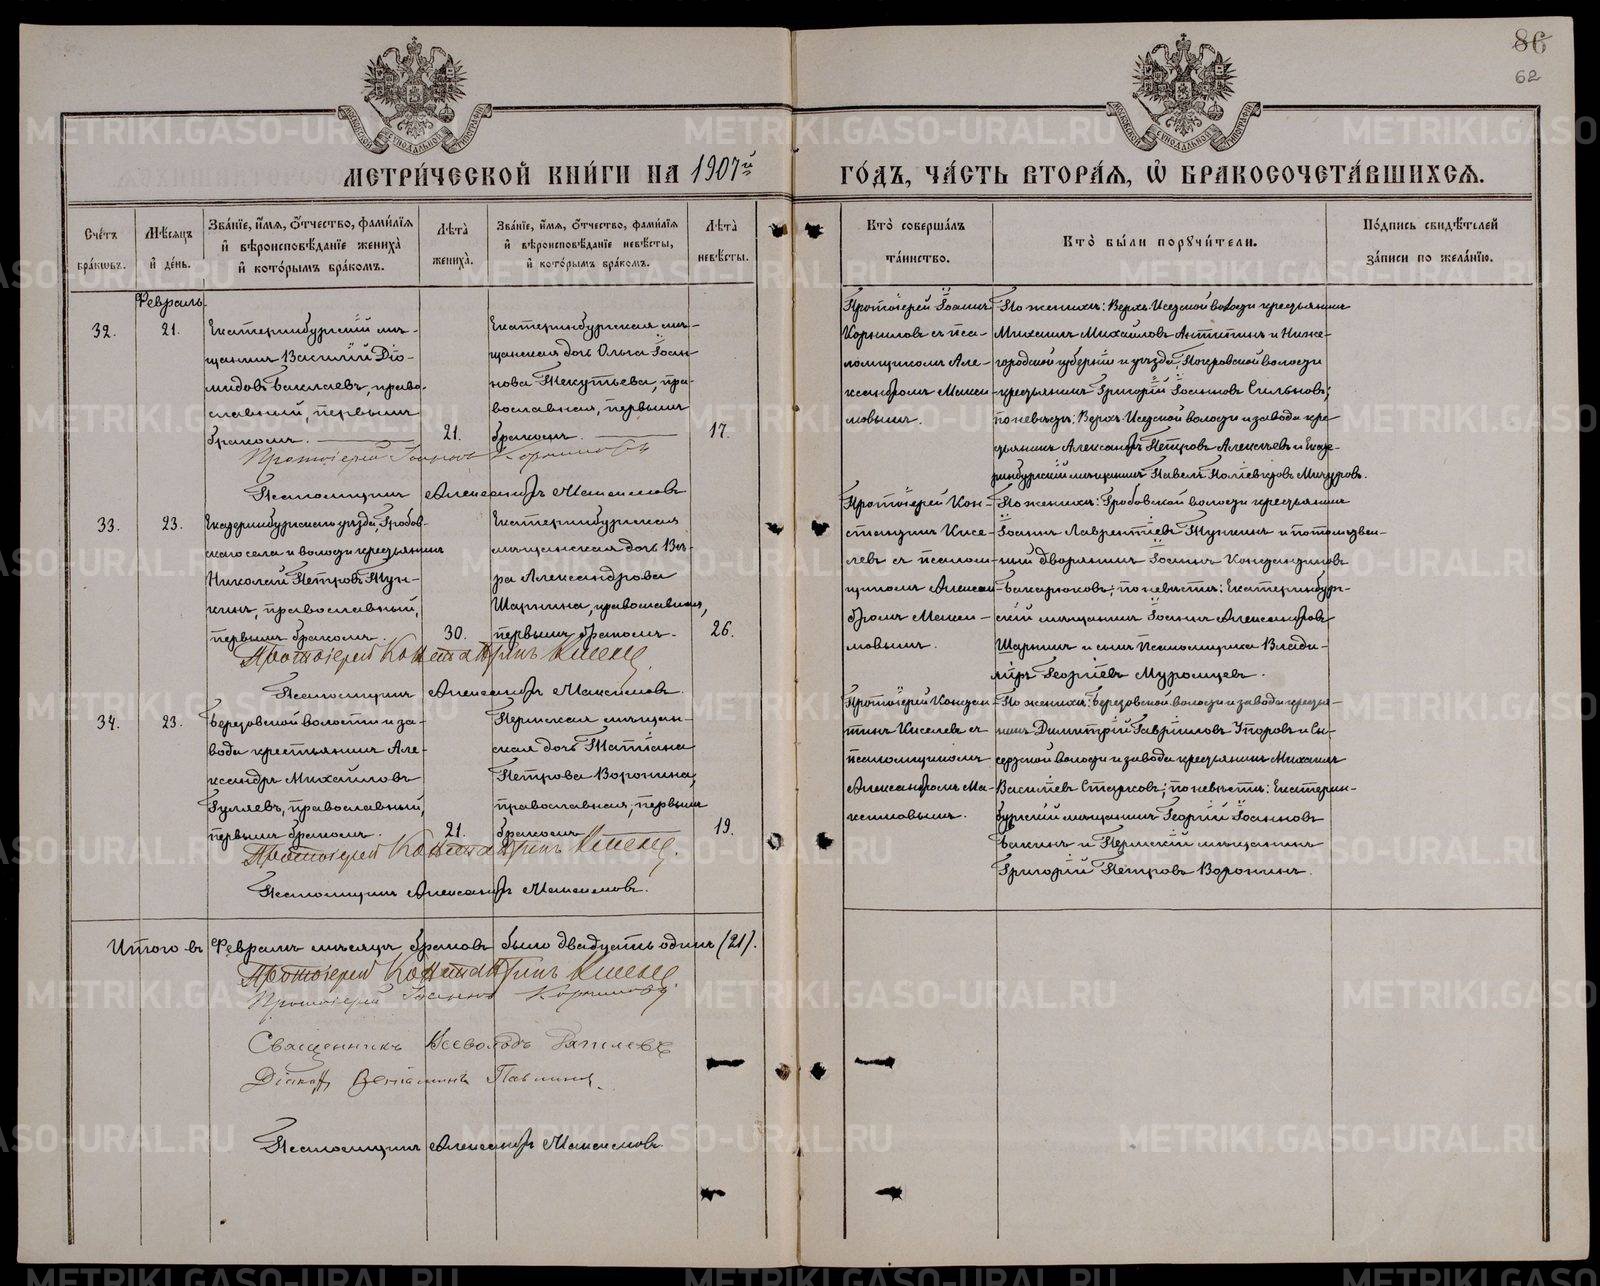 86
62
МЕТРИ́ЧЕСКОЙ КНИ́ГИ НА 1907й ГО́ДЪ, ЧА́СТЬ ВТОРА́Я, Ѡ БРАКОСОЧЕТА́ВШИХСЯ.
Сче́тъ бра́кѡвъ.
Мѣ́сяцъ и де́нь.
Зва́нїе, и́мя, ѻ́тчество, фами́лїя
и вѣроисповѣ́данїе жениха̀
и кото́рымъ бра́комъ.
Лѣ́та жениха̀.
Зва́нїе, и́мя, ѻ́тчество, фами́лїя
и вѣроисповѣ́данїе невѣ́сты,
и кото́рымъ бра́комъ.
Лѣ́та невѣ́сты.
Кто̀ соверша́лъ
та́инство.
Кто̀ бы́ли поручи́тели.
По́дпись свидѣ́телей
за́писи по жела́нїю.
Февраль.
32.
21.
Екатеринбургскій мѣ-
щанинъ Василій Діо-
мидовъ Баклаевъ, право-
славный, первымъ
бракомъ.
21.
Екатеринбургская мѣ-
щанская дочь Ольга Іоан-
нова Текутьева, пра-
вославная, первымъ
бракомъ.
17.
Протоіерей Іоаннъ
Корниловъ съ пса-
ломщикомъ Але-
ксандромъ Макси-
мовымъ.
По женихѣ: Верхъ-Исетской волости крестьянинъ
Михаилъ Михайловъ Антипинъ и Ниже-
городской губерніи и уѣзда, Покровской волости
крестьянинъ Григорій Іоанновъ Сильновъ;
по невѣстѣ: Верхъ-Исетской волости и завода кре-
стьянинъ Александръ Петровъ Алексѣевъ и Екате-
ринбургскій мѣщанинъ Павелъ Поліевктовъ Мичуровъ.
Протоіерей Іоаннъ Корниловъ
Псаломщикъ Александръ Максимовъ
33.
23.
Екатеринбургскаго уѣзда, Гробов-
скаго села и волости крестьянинъ
Николай Петровъ Тун-
кинъ, православный,
первымъ бракомъ.
30.
Екатеринбургская
мѣщанская дочь Вѣ-
ра Александрова
Шарнина, православная,
первымъ бракомъ.
26.
Протоіерей Кон-
стантинъ Кисе-
левъ съ псалом-
щикомъ Алексан-
дромъ Макси-
мовымъ.
По женихѣ: Гробовской волости крестьянинъ
Іоаннъ Лаврентіевъ Тункинъ и потомствен-
ный дворянинъ Іоаннъ Константиновъ
Бакарюковъ; по невѣстѣ: Екатеринбург-
скій мѣщанинъ Іоаннъ Александровъ
Шарнинъ и сынъ псаломщика Влади-
міръ Георгіевъ Муромцевъ.
Протоіерей Константинъ Киселевъ
Псаломщикъ Александръ Максимовъ.
34.
23.
Березовской волости и за-
вода крестьянинъ Але-
ксандръ Михайловъ
Гуляевъ, православный,
первымъ бракомъ.
21.
Пермская мѣщан-
ская дочь Татіана
Петрова Воронина,
православная, первымъ
бракомъ
19.
Протоіерей Констан-
тинъ Киселевъ съ
псаломщикомъ
Александромъ Ма-
ксимовымъ.
По женихѣ: Березовской волости и завода крестья-
нинъ Димитрій Гавріиловъ Упоровъ и Сы-
сертской волости и завода крестьянинъ Михаилъ
Василіевъ Старковъ; по невѣстѣ: Екатерин-
бургскій мѣщанинъ Георгій Іоанновъ
Бакинъ и Пермскій мѣщанинъ
Григорій Петровъ Воронинъ.
Протоіерей Константинъ Киселевъ.
Псаломщикъ Александръ Максимовъ.
Итого въ Февралѣ мѣсяцѣ браковъ было двадцать одинъ (21).
Протоіерей Константинъ Киселевъ
Протоіерей Іоаннъ Корниловъ
Священникъ Всеволодъ
Діаконъ Веніаминъ
Псаломщикъ Александръ Максимовъ.
METRIKI.GASO-URAL.RU